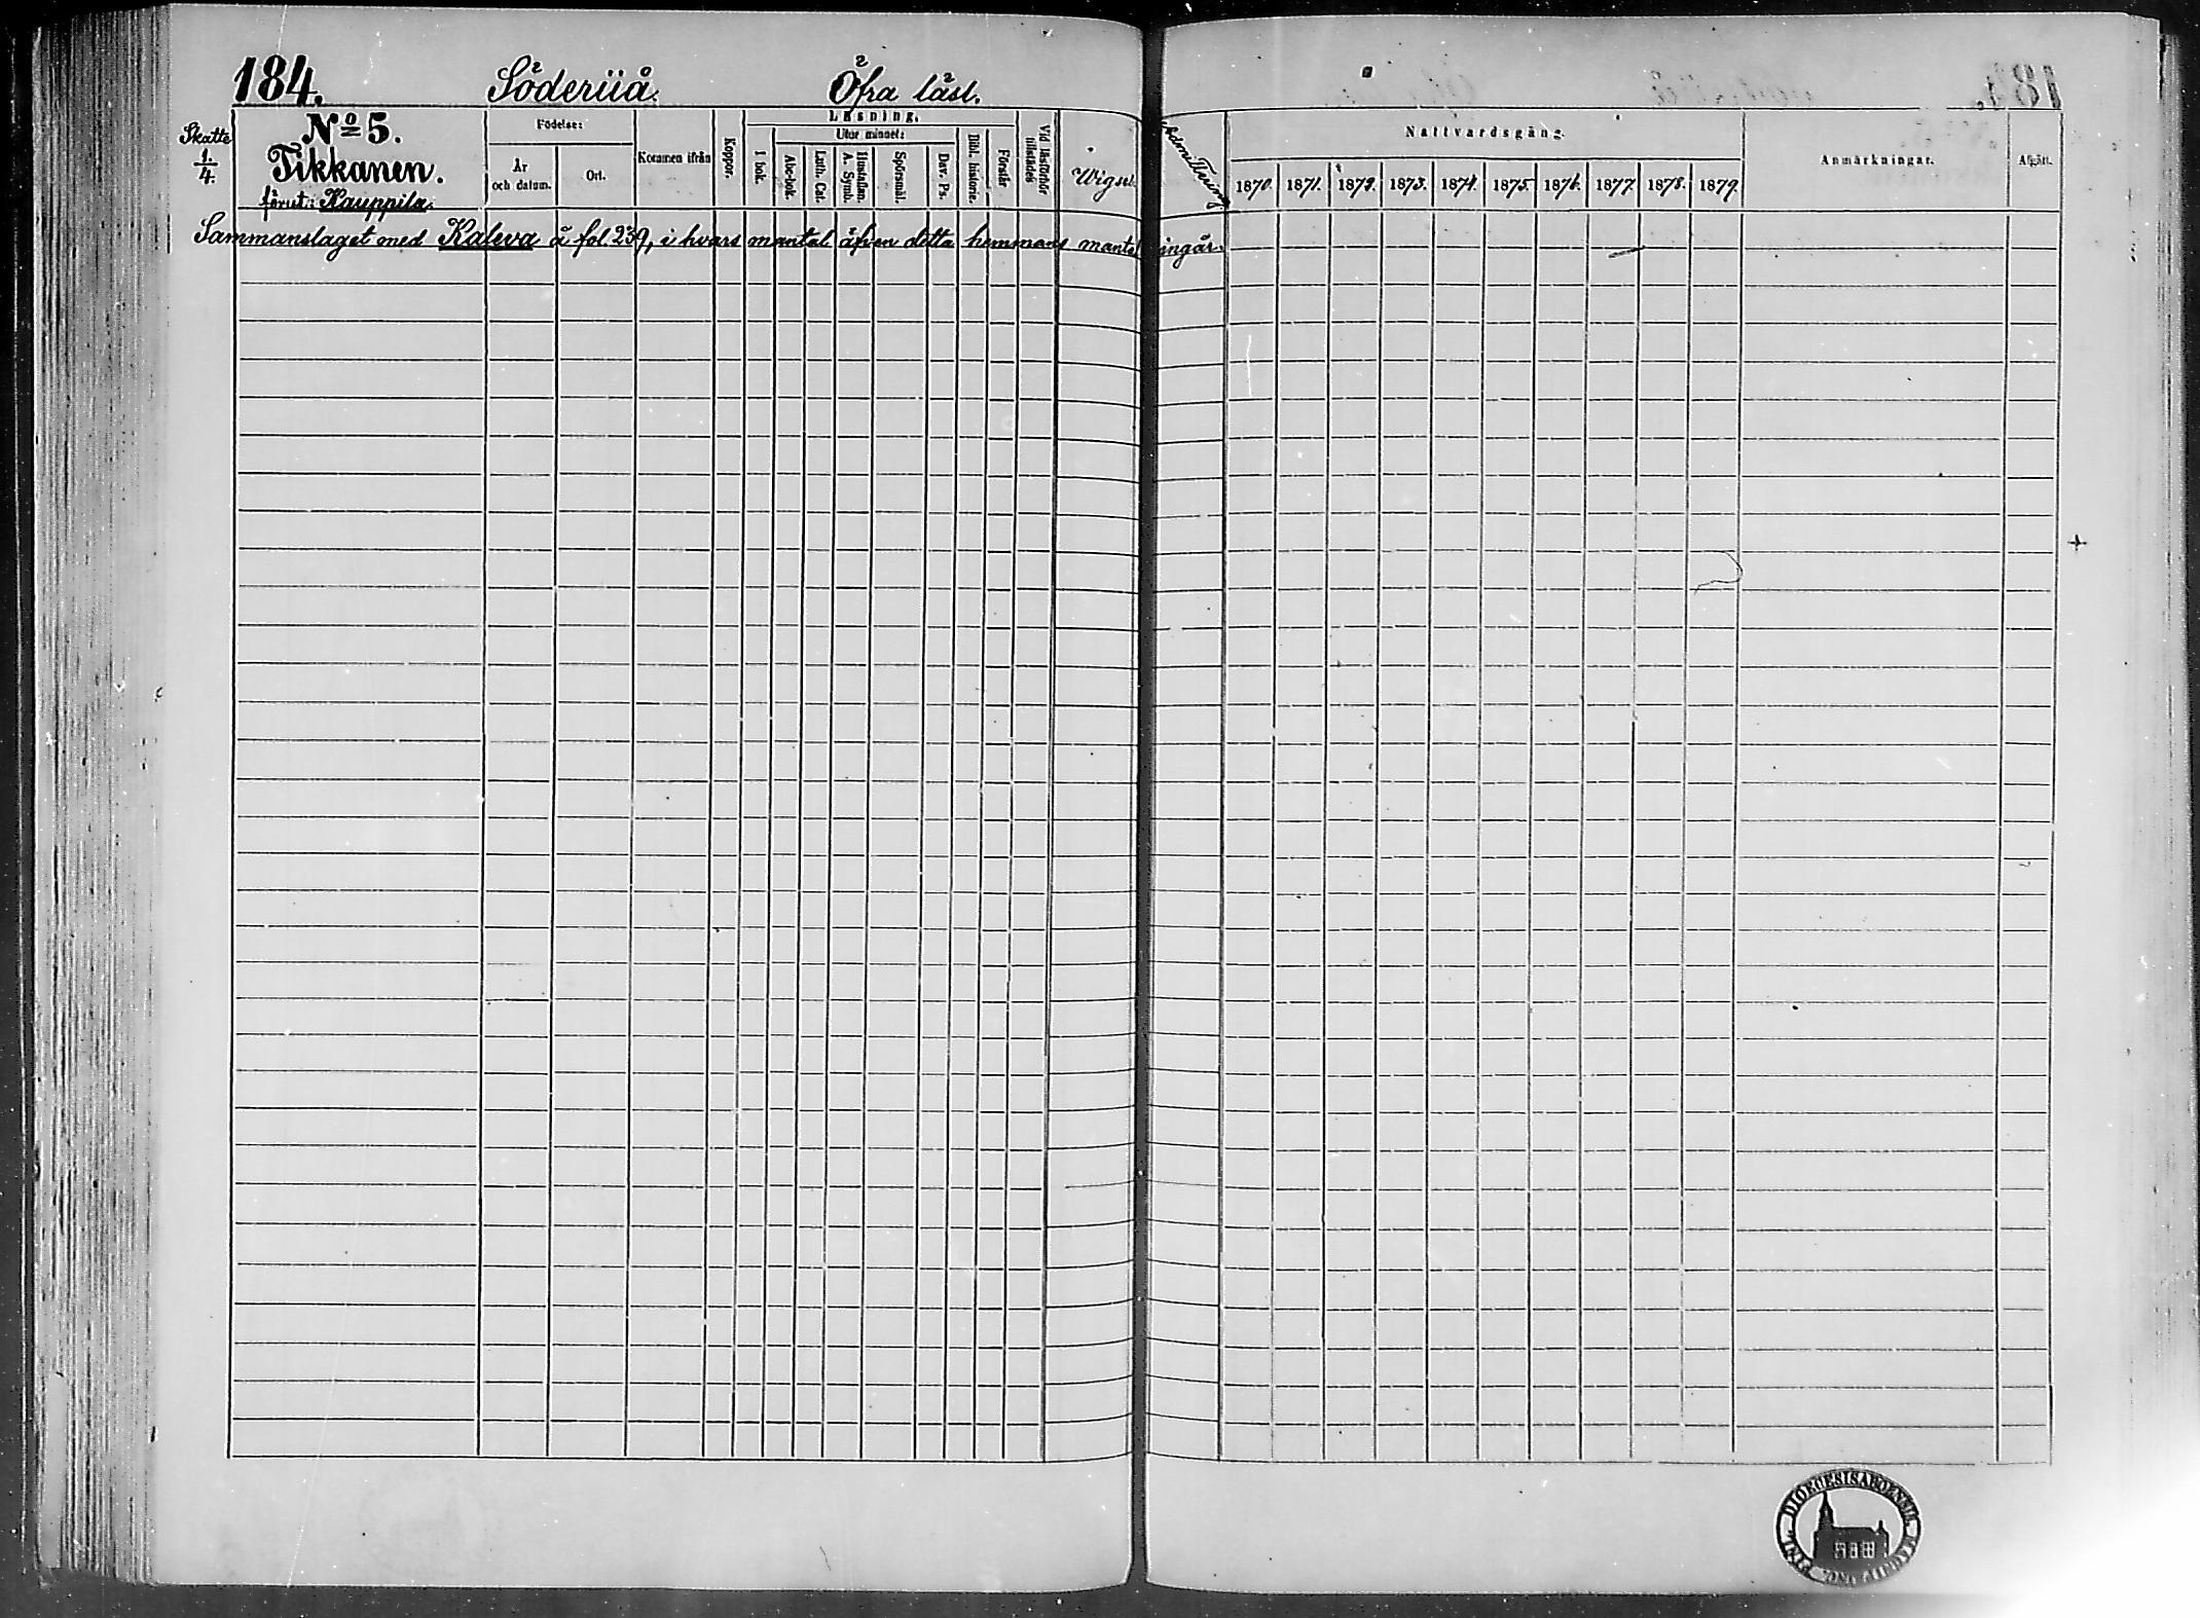 184. Söderiiå. Öfra läsl.
Skatte 1/4. No 5.
Tikkanen.
förut: Kauppila.
Födelse:
År och datum.
Ort.
Kommen ifrån
Koppor.
Läsning.
I bok.
Utur minnet:
Abc-bok.
Luth. Cat.
Hustaflan. A. Symb.
Spörsmål.
Dav. Ps.
Bibl. historie.
Förstår
Vid läsförhör tillstädes
Wigsel.
Nattvardsgång.
1870. 1871. 1872. 1873. 1874. 1875. 1876. 1877. 1878. 1879.
Anmärkningar.
Afgått.
Sammanslaget med Kaleva å fol 239, i hvars mantal äfven detta hemmans mantal ingår.